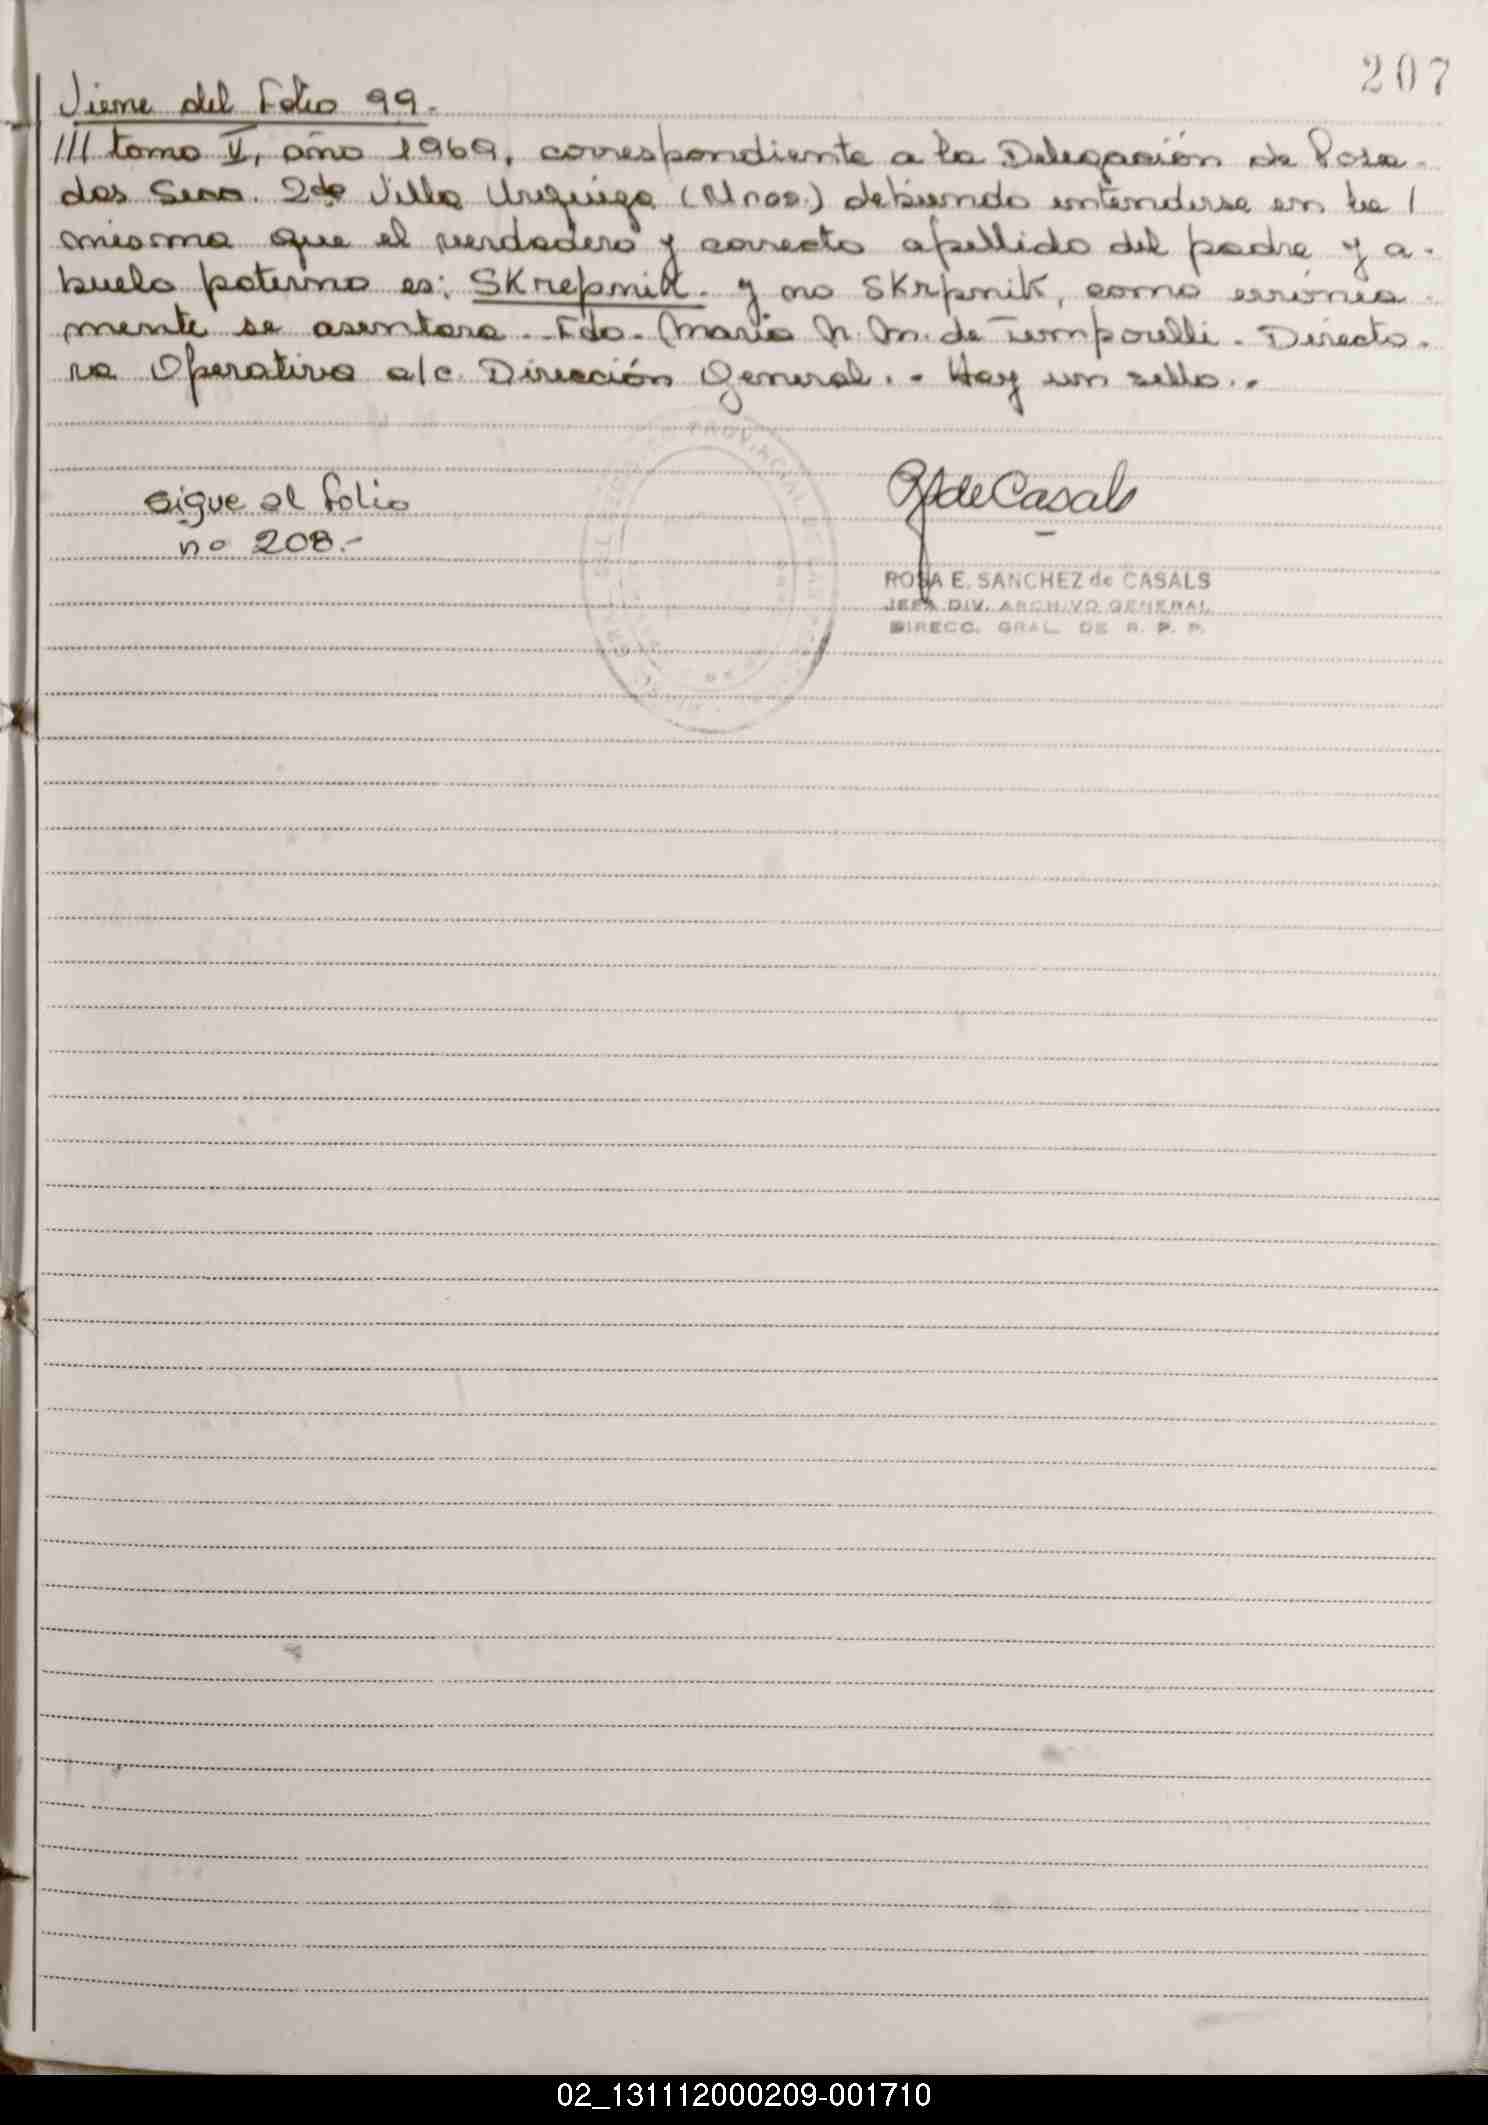 207
Viene del Folio 99.-
/// tomo V, año 1969, correspondiente a la Delegación de Posa-
das Secc. 2da Villa Urquiza (Mnes.) debiendo entenderse en la /
misma que el verdadero y correcto apellido del padre y a-
buelo paterno es: SKrepniK.- y no SKrpniK, como errónea-
mente se asentara.- Fdo. Maria N. M. de Temporelli.- Directo-
ra Operativa a/c. Dirección General.- Hay un sello.-
sigue al folio
nº 208.-
de Casals
PROVINCIAL DE LAS
ROSA E. SANCHEZ de CASALS
JEFA DIV. ARCHIVO GENERAL
DIRECC. GRAL. DE R. P. P.
02_131112000209-001710